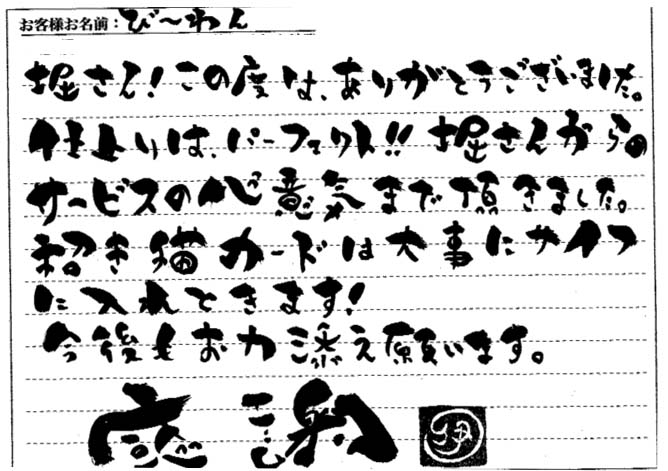 お客様お名前：び〜わん
堀さん！この度は、ありがとうございました。
仕上りは、パーフェクト!! 堀さんからの
サービスの心意気まで頂きました。
招き猫カードは大事にサイフ
に入れときます！
今後もお力添え願います。
感謝